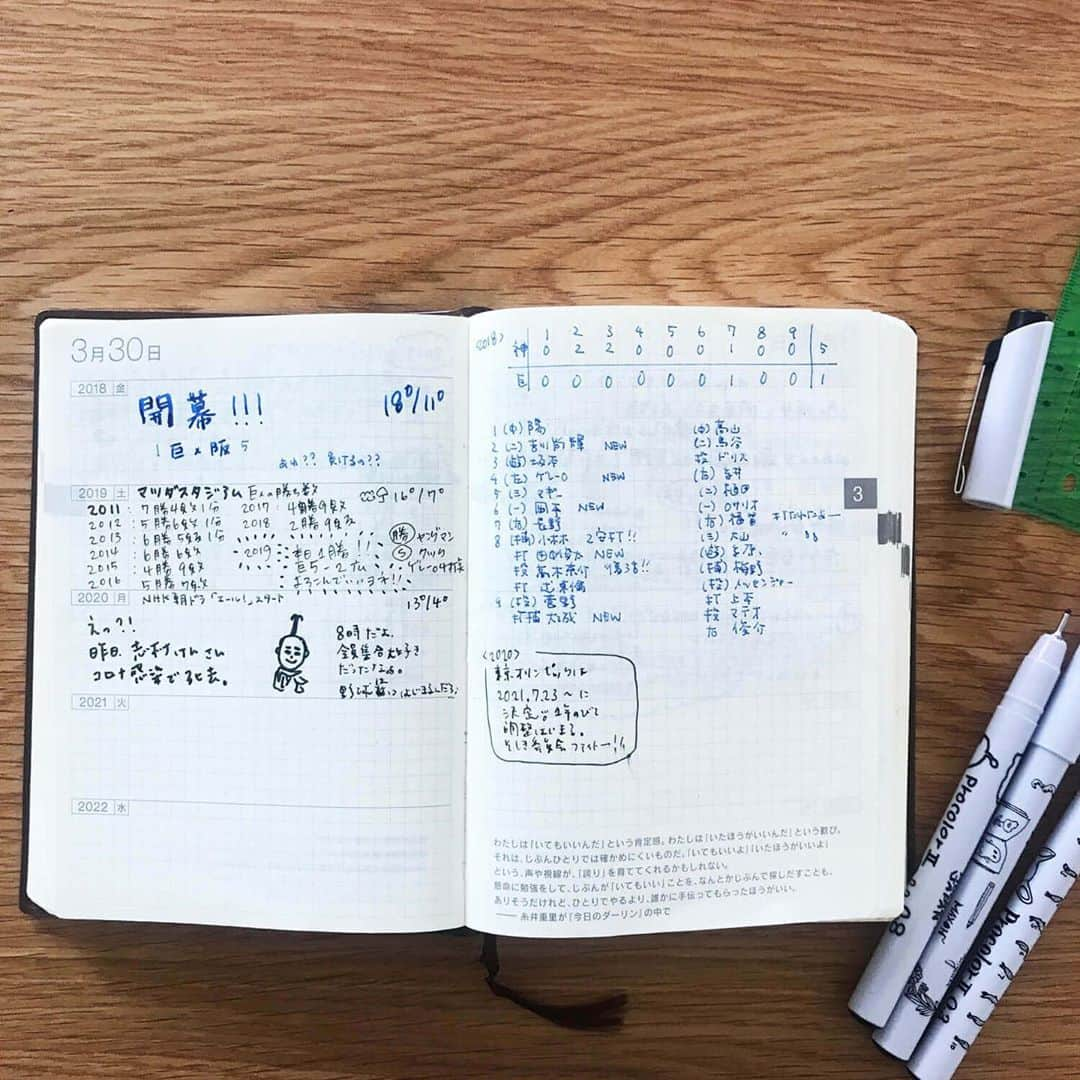 3月30日
2018 金
開幕!!!
18°/11°
1 巨 x 阪 5
あれ?? 負けるの??
2019 土
マツダスタジアム 巨人の勝ち数
16°/7°
2011: 7勝4敗1分 2017: 4勝9敗
2012: 5勝6敗1分 2018 2勝9敗
2013: 6勝5敗1分
2014: 6勝6敗
2015: 4勝9敗
2016: 5勝7敗
2019
1勝!!
巨5-2
勝 ヤングマン
S クック
ゲレーロ4打点
2020 月
NHK朝ドラ「エール」スタート
13°/4°
えっ?!
昨日、志村けんさん
コロナ感染で死去。
8時だよ、
全員集合大好き
だったなぁ。
2021 火
2022 水
<2018>
1 2 3 4 5 6 7 8 9
神 0 2 2 0 0 0 1 0 0 5
巨 0 0 0 0 0 0 1 0 0 1
1 (中) 陽
2 (二) 吉川尚輝 NEW
3 (遊) 坂本
4 (左) ゲレーロ NEW
5 (三) マギー
6 (一) 岡本 NEW
7 (右) 長野
8 (捕) 小林 2安打!!
打 田中俊太 NEW
投 高木京介
打 辻東倫
9 (投) 菅野
打捕 大城 NEW
(中) 高山
(二) 鳥谷
投 ドリス
(左) 糸井
(二) 植田
(一) ロサリオ
(右) 福留
(三) 大山
(遊) 糸原
(捕) 梅野
(投) メッセンジャー
打 上本
投 マテオ
右 俊介
<2020>
東京オリンピックは
2021.7.23〜に
決定。1年のびて
調整はじまる。
3
わたしは「いてもいいんだ」という肯定感。わたしは「いたほうがいいんだ」という歓び。
それは、じぶんひとりでは確かめにくいものだ。「いてもいいよ」「いたほうがいいよ」
という、声や視線が、「誇り」を育ててくれるかもしれない。
懸命に勉強をして、じぶんが「いてもいい」ことを、なんとかじぶんで探しだすことも、
ありそうだけれど、ひとりでやるより、誰かに手伝ってもらったほうがいい。
—— 糸井重里が『今日のダーリン』の中で
Procolor II 08
JAPAN
MARVY
Procolor II 0.3